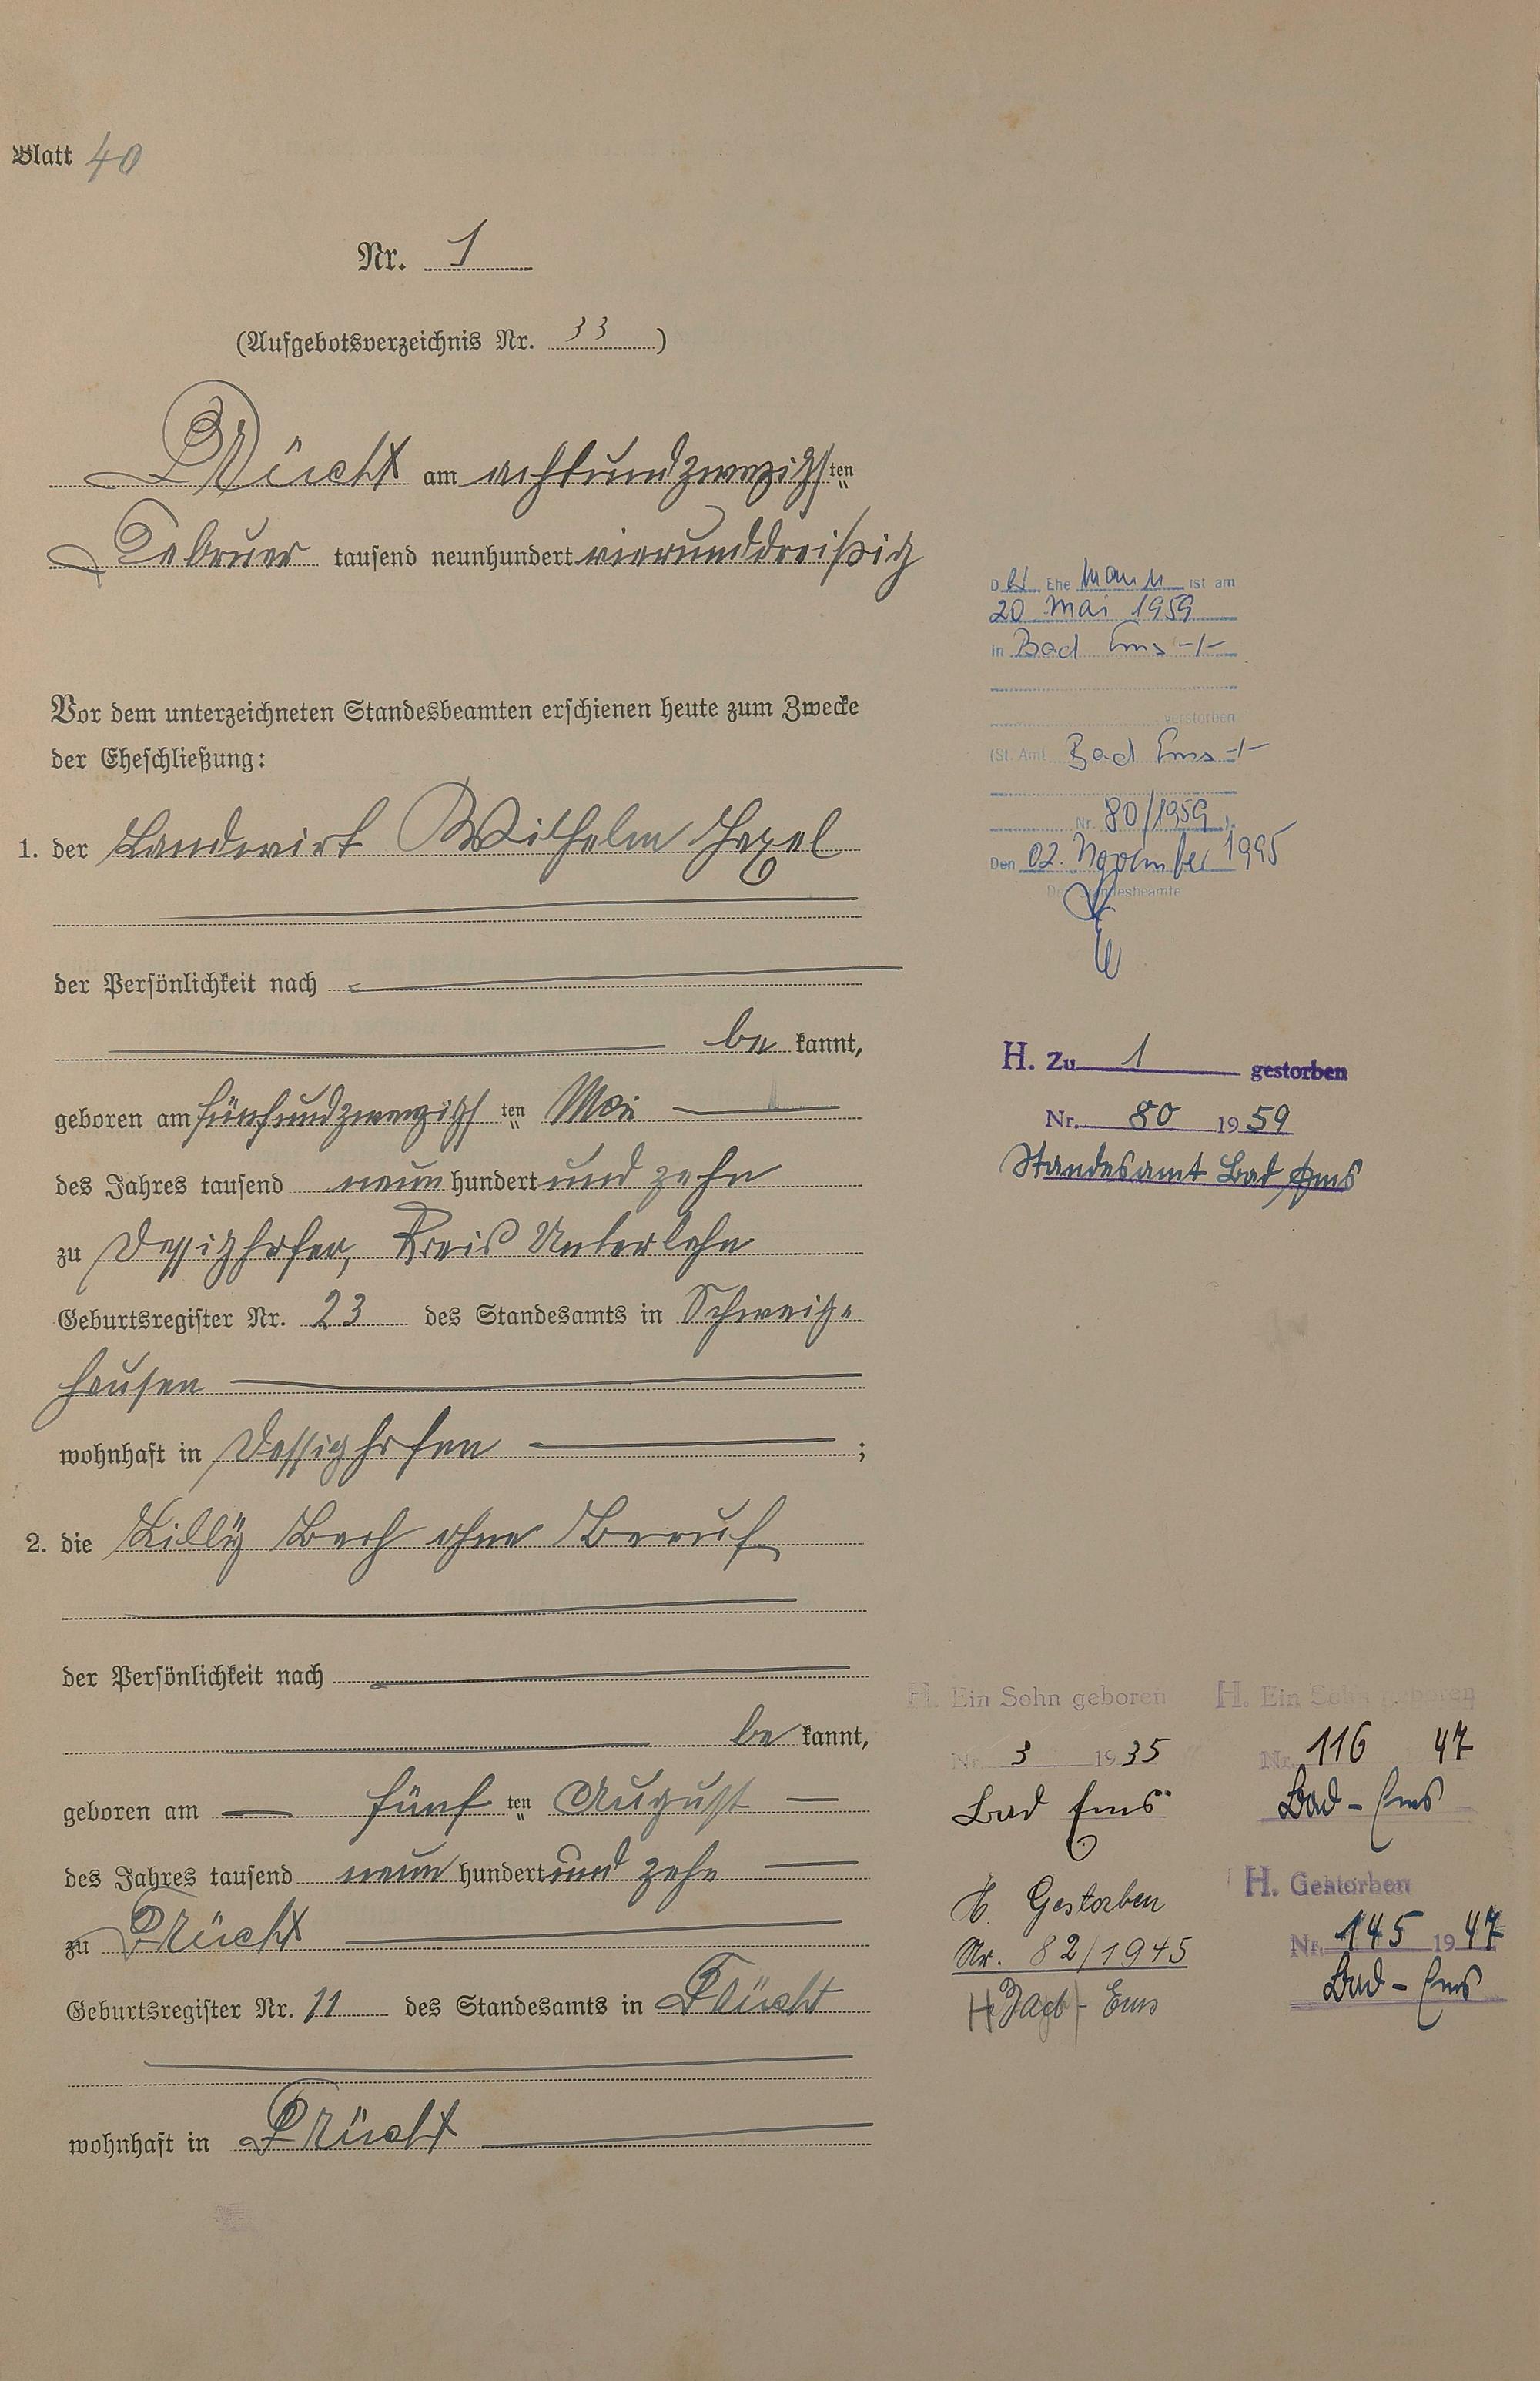 Blatt 40
Nr. 1
(Aufgebotsverzeichnis Nr. 33)
Frücht am achtundzwanzigsten
Februar tausend neunhundert vierunddreißig
Vor dem unterzeichneten Standesbeamten erschienen heute zum Zwecke
der Eheschließung:
1. der Landwirt Wilhelm
der Persönlichkeit nach
be kannt,
geboren am fünfundzwanzigsten Mai
des Jahres tausend neun hundert und zehn
zu Dessighofen, Kreis Unterlahn
Geburtsregister Nr. 23 des Standesamts in Schweig=
hausen
wohnhaft in Dessighofen ;
2. die Lilly Bach ohne Beruf
der Persönlichkeit nach
be kannt,
geboren am fünf ten August
des Jahres tausend neun hundert und zehn
zu Frücht
Geburtsregister Nr. 11 des Standesamts in Frücht
wohnhaft in Frücht
Der Ehe mann ist am
20 Mai 1959
in Bad Ems -/-
verstorben
(St. Amt Bad Ems -/-
Nr. 80/1959 ).
Den 02. November 1995
Der Standesbeamte
H. Zu 1 gestorben
Nr. 80 1959
Standesamt Bad Ems
H. Ein Sohn geboren
Nr. 3 1935
Bad Ems
H. Gestorben
Nr. 82/1945
Bad-Ems
H. Ein Sohn geboren
Nr. 116 47
Bad-Ems
H. Gestorben
Nr. 145 1947
Bad-Ems